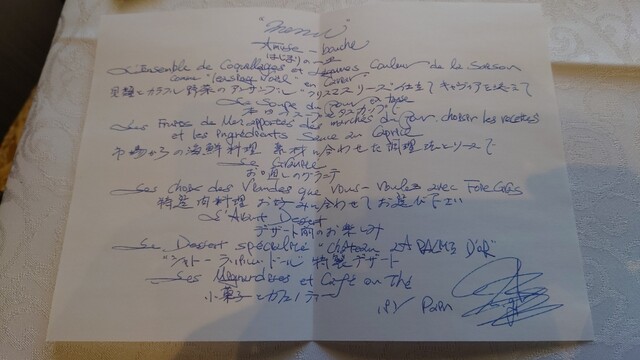 "Menu"
Amuse-bouche
はじまりの一
L'Ensemble de Coquillages et Légumes Couleur de la Saison
comme " Noël" en Caviar
貝類とカラフル野菜のアンサンブル "クリスマスリース"仕立て キャヴィアを添えて
La Soupe du Jour en tasse
本日のスープ カップで
Les Fruits de Mer apportés Du marches du Jour, choisir les recettes
et les ingrédients Sauce au Caprice
市場からの海鮮料理 素材に合わせた調理法とソースで
Le Granité
お口直しのグラニテ
Les choix des Viandes que Vous-Voulez avec Foie Gras
特選肉料理 お好みに合わせてお選び下さい
L'Avant Dessert
デザート前のお楽しみ
Le Dessert spécialité "Château de la PALME D'OR"
"シャトー・ラ・パルム・ドール" 特製デザート
Les Mignardises et Café ou Thé
小菓子とカフェ/ティー
Papa